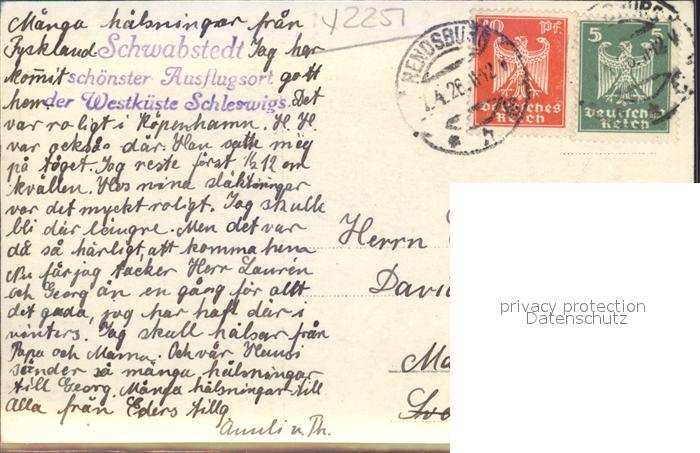 Många hälsningar från
Tyskland Jag har
kommit gott
hem. Det
Schwabstedt
schönster Ausflugsort
der Westküste Schleswigs.
var roligt i Köpenhamn. H. H.
var också där. Han satte mig
på tåget. Jag reste först ½12 om
kvällen. Hos mina släktingar
var det myckt roligt. Jag skulle
bli där längre. Men det var
då så härligt, att komma
Nu får jag tacker Herr Laurén
och Georg än en gång för allt
det goda, jag har haft där i
vinters. Jag skall hälsar från
Papa och Mama. Och vår Hansi
sänder så många hälsningar
till Georg. Många hälsningar till
Alla från Eders tillg
Y2251
10 Pf.
Deutsches
Reich
5 5
Deutsches
Reich
RENDSBURG
.4.26.11-12 V
Herrn
David
Ma
privacy protection
Datenschutz